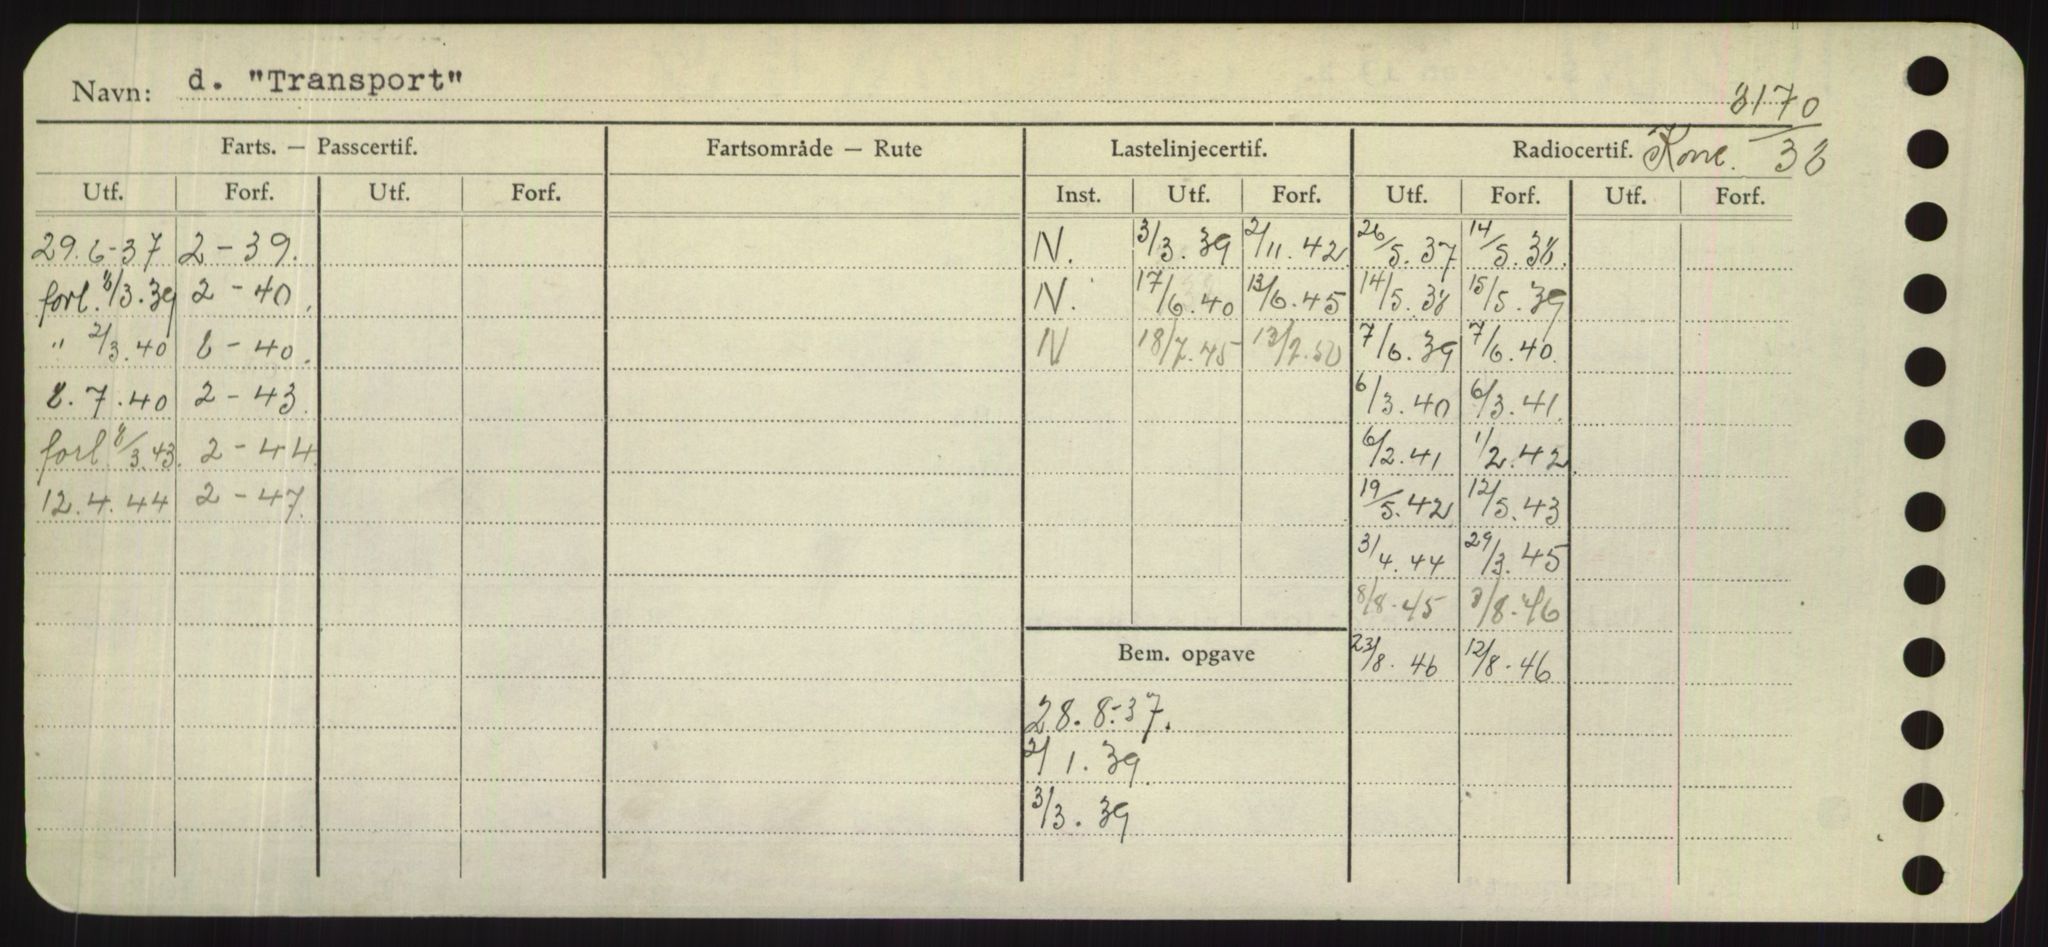 Navn: d. "Transport"
3170
Farts. — Passcertif. Fartsområde — Rute Lastelinjecertif. Radiocertif. 38
Utf. Forf. Utf. Forf. Inst. Utf. Forf. Utf. Forf. Utf. Forf.
29.6-37 2-39. N. 3/3.39 2/11.42 26/5.37 14/5.38.
forl. 8/3.39 2-40. N. 17/6.40 13/6.45 14/5.38 15/5.39
" 2/3.40 8-40. N 18/7.45 13/7.50 7/6.39 7/6.40.
8.7.40 2-43. 6/3.40 6/3.41.
forl 8/3.43. 2-44. 6/2.41 1/2.42.
12.4.44 2-47. 19/5.42 12/5.43
3/4.44 29/3.45
8/8.45 8/8.46
Bem. opgave 23/8.46 12/8.46
28.8-37.
2/1.39.
3/3.39